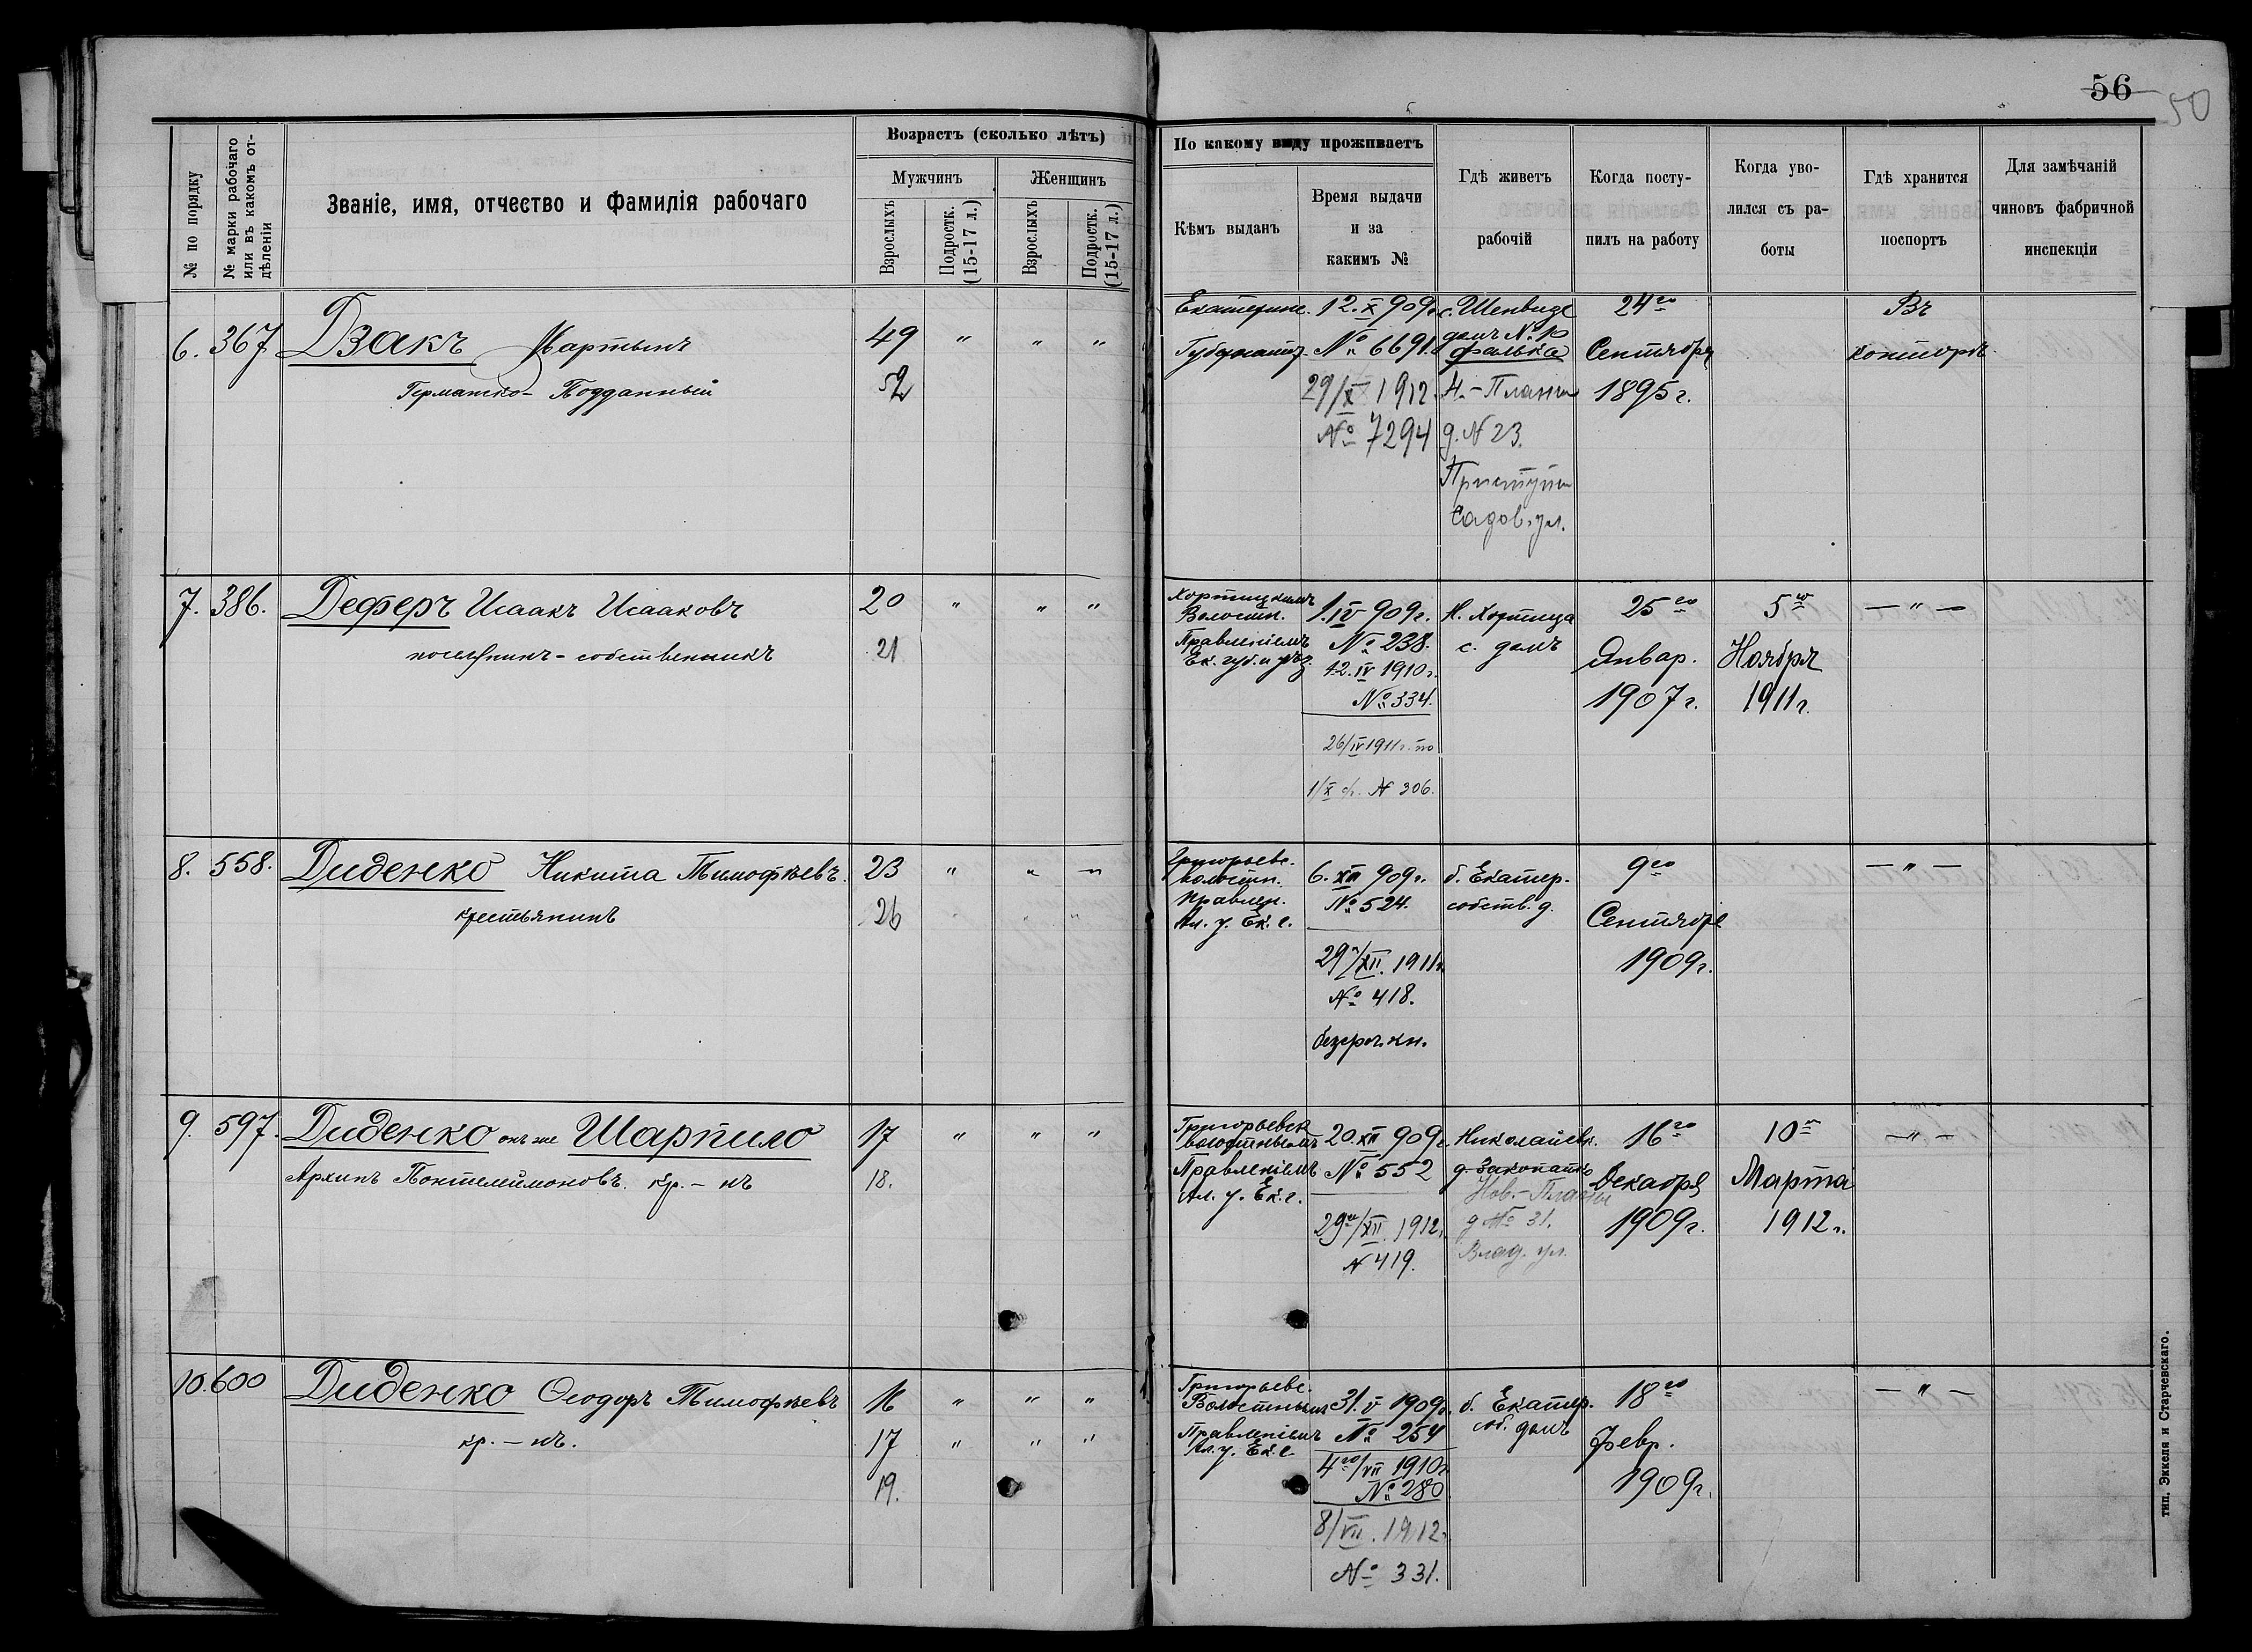 56
50
№ по порядку
№ марки рабочаго или въ какомъ отдѣленіи
Званіе, имя, отчество и фамилія рабочаго
Возрастъ (сколько лѣтъ)
Мужчинъ
Женщинъ
Взрослыхъ
Подростк. (15-17 л.)
Взрослыхъ
Подростк. (15-17 л.)
По какому виду проживаетъ
Кѣмъ выданъ
Время выдачи
и за
какимъ №
Гдѣ живетъ
рабочій
Когда посту-
пилъ на работу
Когда уво-
лился съ ра-
боты
Гдѣ хранится
поспортъ
Для замѣчаній
чиновъ фабричной
инспекціи
6. 367 Дзакъ Мартынъ 49 " " "
Германско-Подданный 52
Екатерин.
Губернатор.
12.X 909 г.
№ 6691.
29/XI 1912.
№ 7294
с. Шенвизе
домъ № 10
фалька
Н.-Планы
д. N 23.
Садов. ул.
24го
Сентября
1895 г.
Въ
конторѣ
7. 386. Деферъ Исаакъ Исааковъ 20 " " "
поселянинъ-собственникъ 21
Хортицкимъ
Волостн.
Правленіемъ
Ек. губ. и уѣз.
1.IV 909 г.
№ 238.
12.IV 1910 г.
№ 334.
26/IV 1911 г. по
1/X N 306.
Н. Хортица
с. домъ
25го
Январ.
1907 г.
5го
Ноября
1911 г.
— " —
8. 558. Диденко Никита Тимофѣевъ. 23 " " "
крестьянинъ 26 " " "
Григорьевс.
волостн.
Правлен.
Ал. у. Ек. г.
6.XII 909 г.
№ 524.
29/XII. 1911 г.
№ 418.
безсроч. кн.
б. Екатер.
собств. д.
9го
Сентября
1909 г.
— " —
9. 597. Диденко онъ же Шарпило 17 " " "
Архипъ Понтелеимоновъ. кр.-нъ 18.
Григорьевск
волостнымъ
Правленіемъ
Ал. у. Ек. г.
20.XII 909 г.
№ 552
29го/XII. 1912 г.
N 419.
Николаевк.
Нов.-Планы
д № 31.
Влад. ул.
16го
Декабря
1909 г.
10го
Марта
1912 г.
— " —
10. 600 Диденко Ѳеодоръ Тимофѣевъ 16 " " "
кр.-нъ. 17 " " "
19.
Григорьевс.
Волостнымъ
Правленіемъ
Ал. у. Ек. г.
31.V 1909 г.
№ 254
4го/VII 1910 г.
№ 280
8/VII. 1912 г.
№ 331.
б. Екатер.
соб. домъ
18го
февр.
1909 г.
— " —
тип. Эккеля и Старчевскаго.